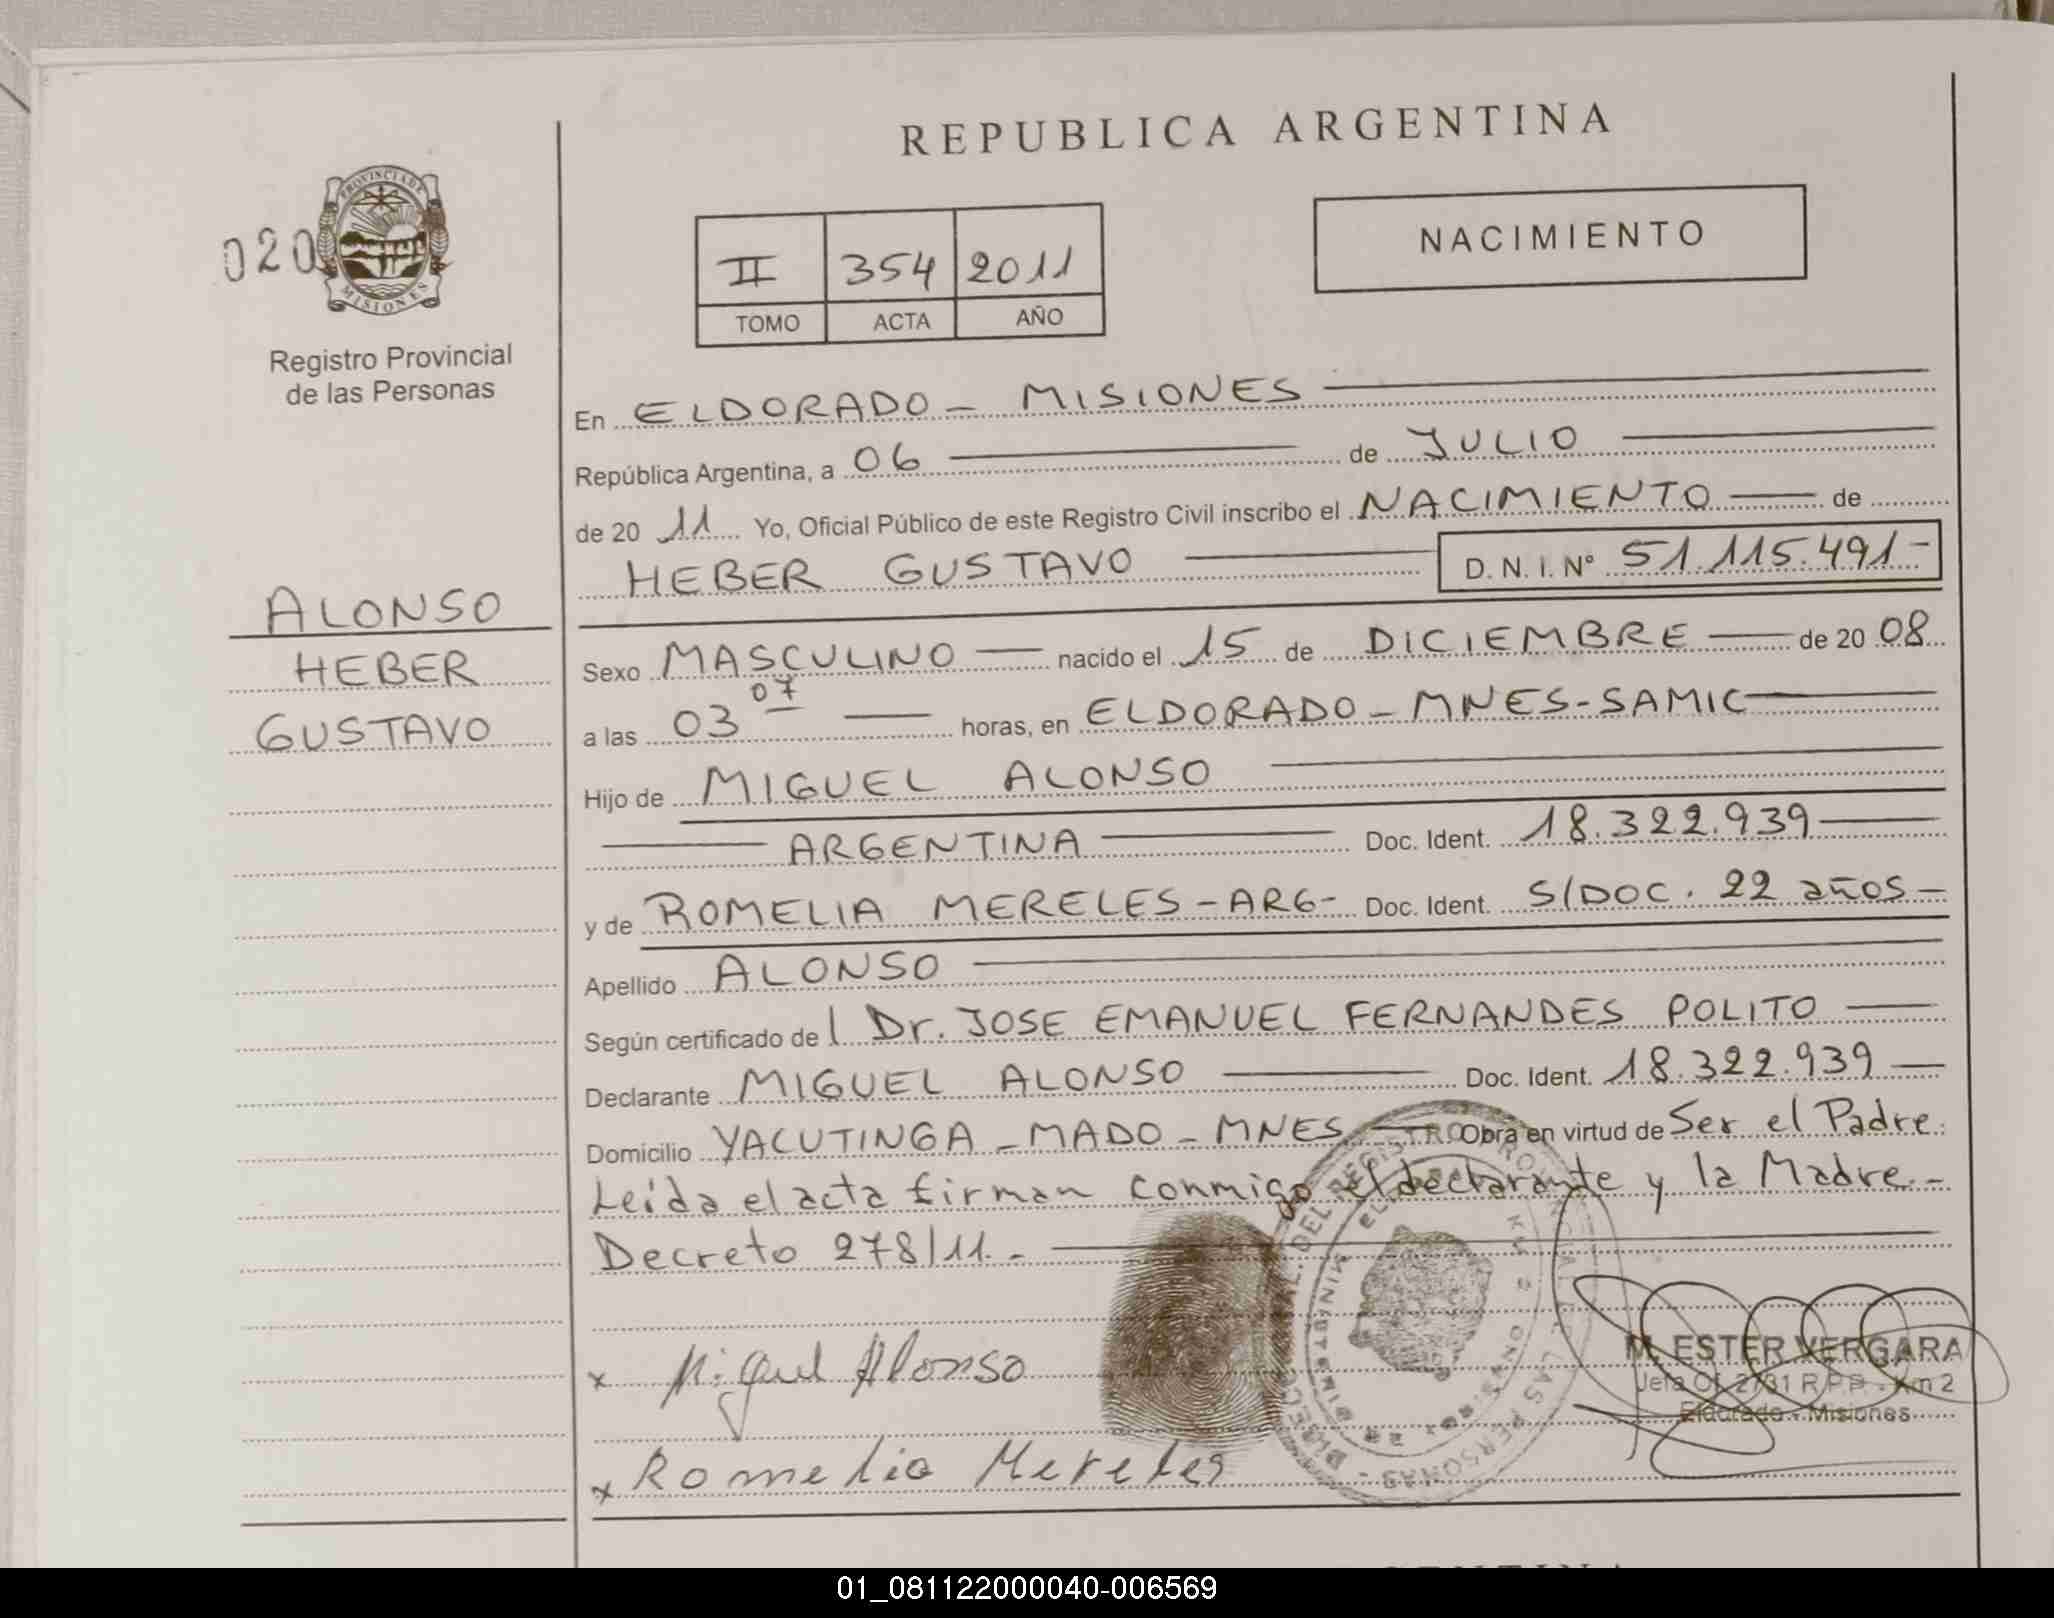 REPUBLICA ARGENTINA
020
PROVINCIA DE
MISIONES
Registro Provincial
de las Personas
II 354 2011
TOMO ACTA AÑO
NACIMIENTO
En ELDORADO - MISIONES
República Argentina, a 06 de JULIO
de 20 11 Yo, Oficial Público de este Registro Civil inscribo el NACIMIENTO de
HEBER GUSTAVO D.N.I. Nº 51.115.491-
ALONSO
HEBER
GUSTAVO
Sexo MASCULINO nacido el 15 de DICIEMBRE de 20 08
a las 03 07 horas, en ELDORADO - MNES-SAMIC
Hijo de MIGUEL ALONSO
ARGENTINA Doc. Ident. 18.322.939
y de ROMELIA MERELES - ARG- Doc. Ident. S/DOC. 22 años -
Apellido ALONSO
Según certificado de l Dr. JOSE EMANUEL FERNANDES POLITO
Declarante MIGUEL ALONSO Doc. Ident. 18.322.939
Domicilio YACUTINGA - MADO - MNES Obra en virtud de Ser el Padre.
Leída el acta firman conmigo el declarante y la Madre.-
Decreto 278/11.-
x Miguel Alonso
x Romelia Mereles
M. ESTER VERGARA
Jefa Of. 2731 R.P.P. - Km 2
Eldorado - Misiones
01_081122000040-006569